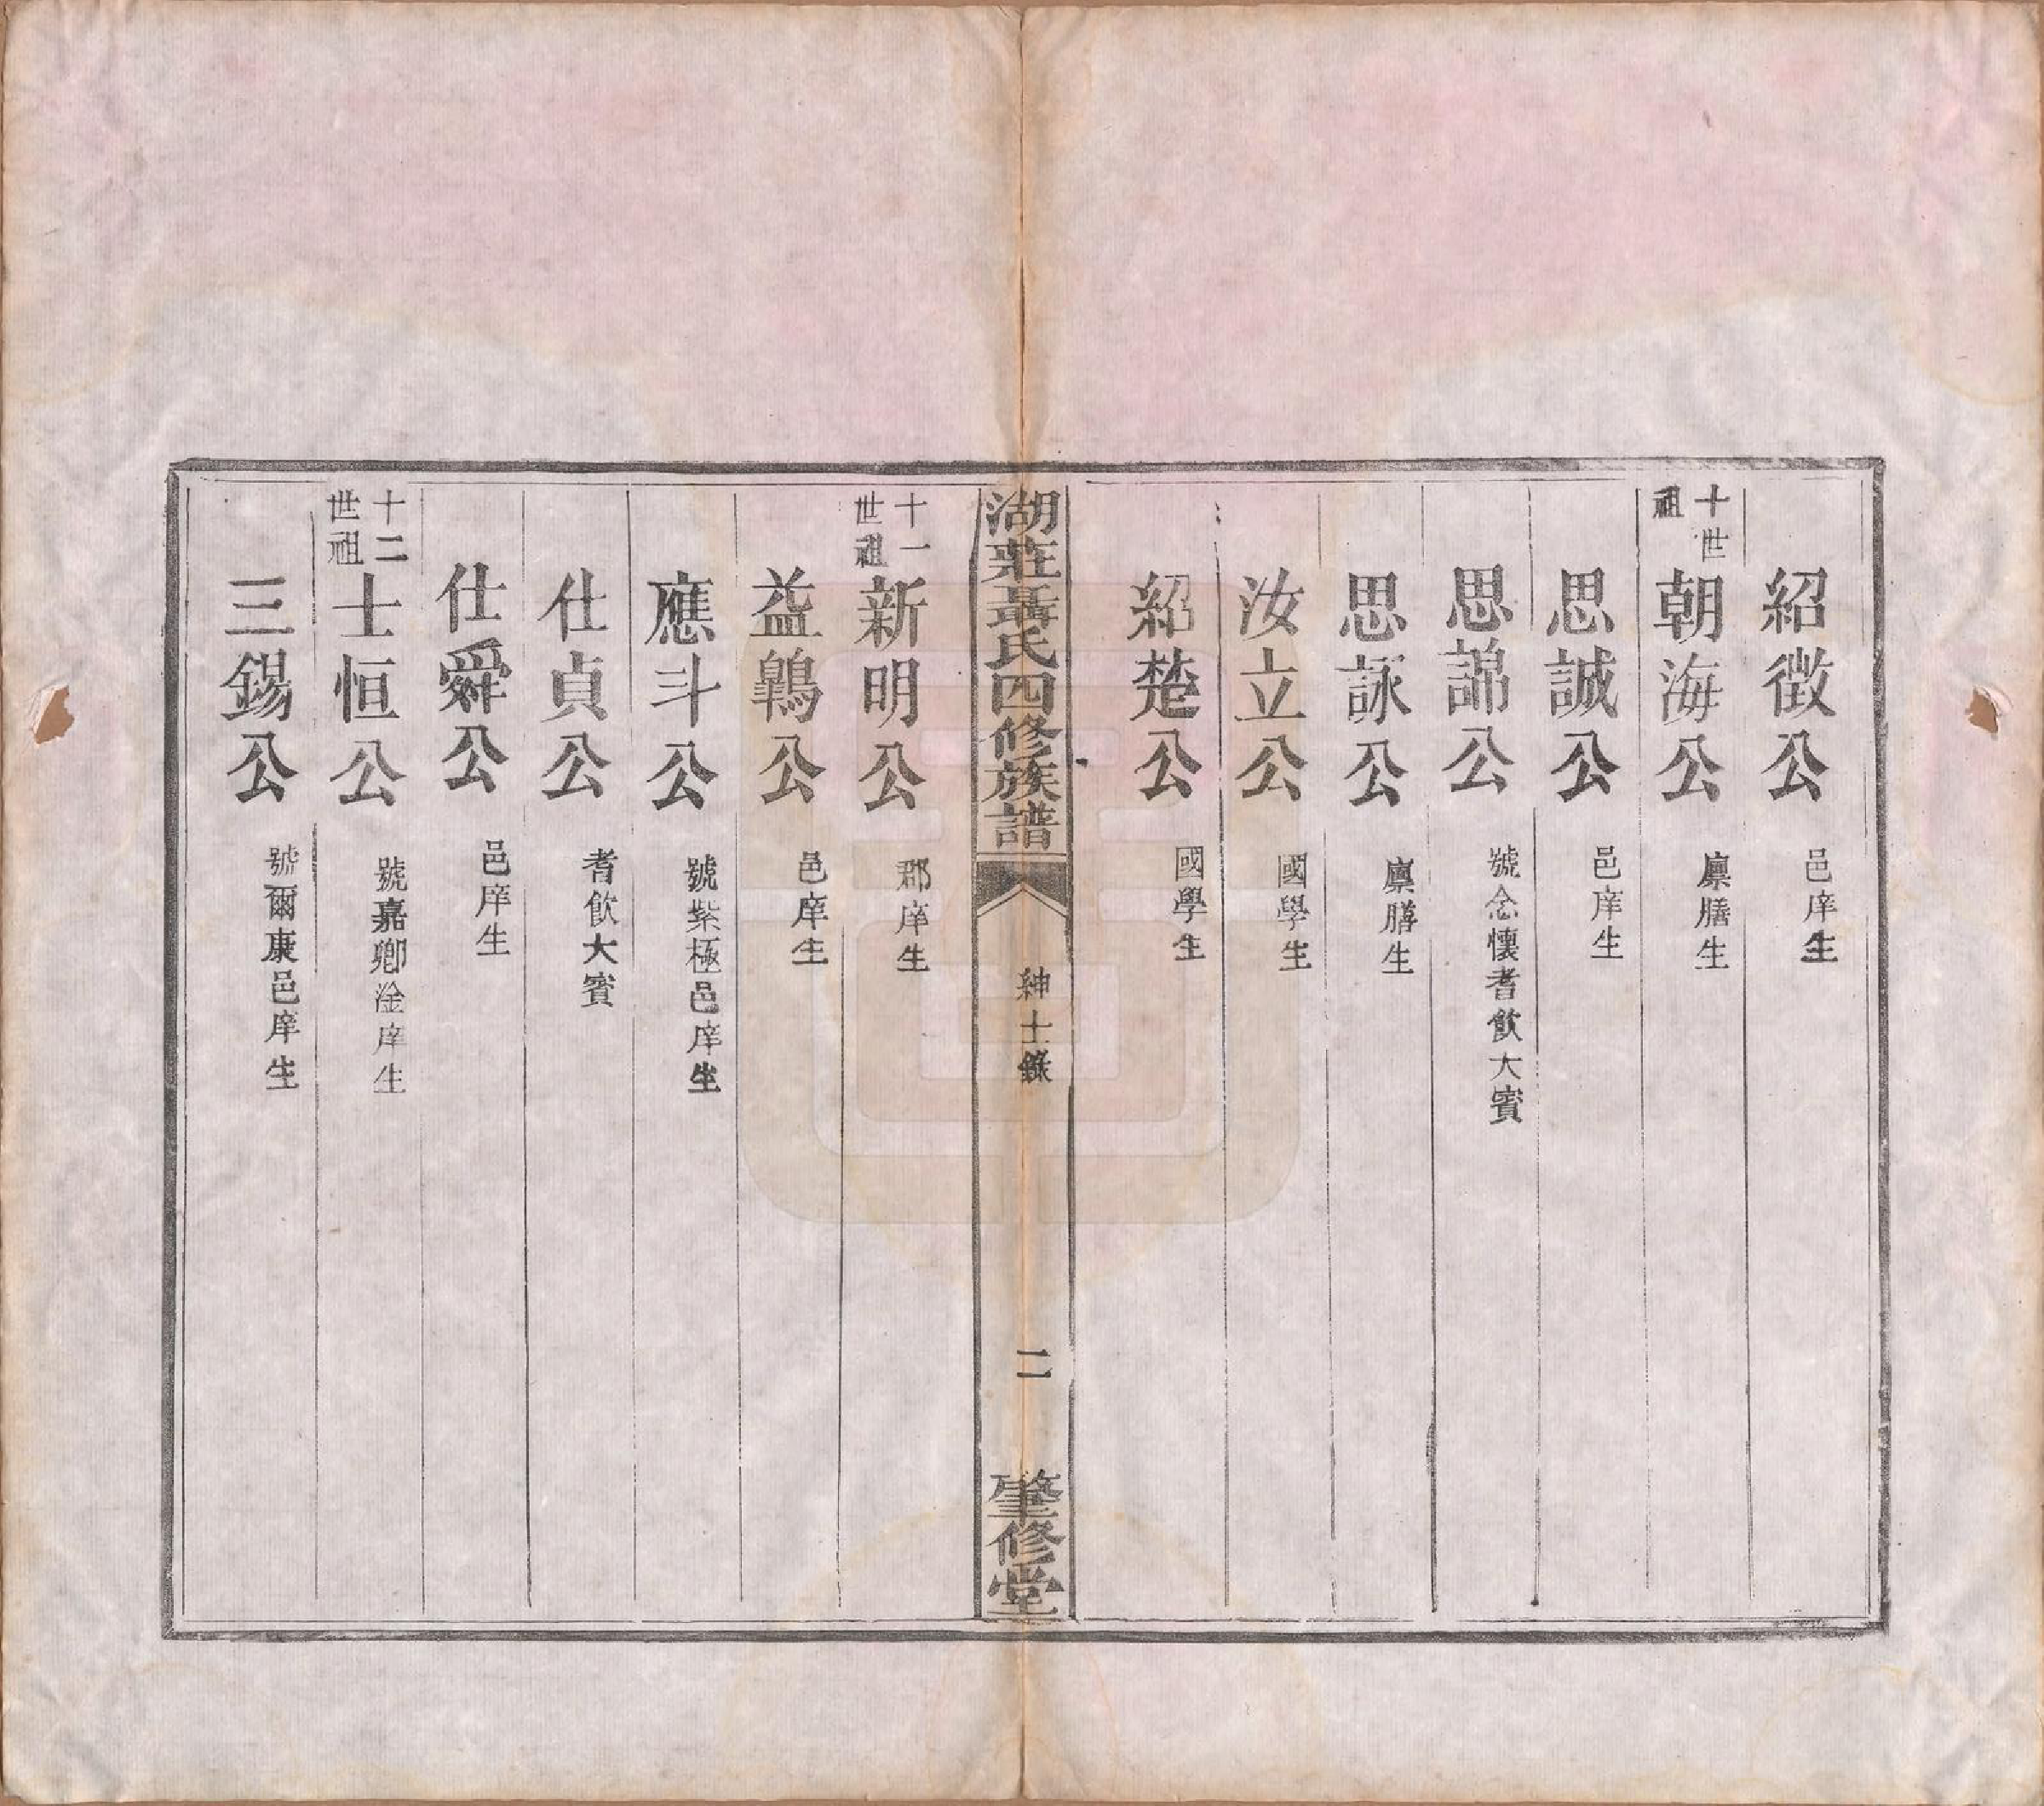 紹徵公 邑庠生
十世祖 朝海公 廪膳生
思誠公 邑庠生
思諦公 號念懷耆飲大賓
思詠公 廪膳生
汝立公 國學生
紹楚公 國學生
湖莊聶氏四修族譜 紳士錄 二 肇修堂
十一世祖 新明公 郡庠生
益鶉公 邑庠生
應斗公 號紫極邑庠生
仕貞公 耆飲大賓
仕舜公 邑庠生
十二世祖 士恒公 號嘉卿淦庠生
三錫公 號爾康邑庠生